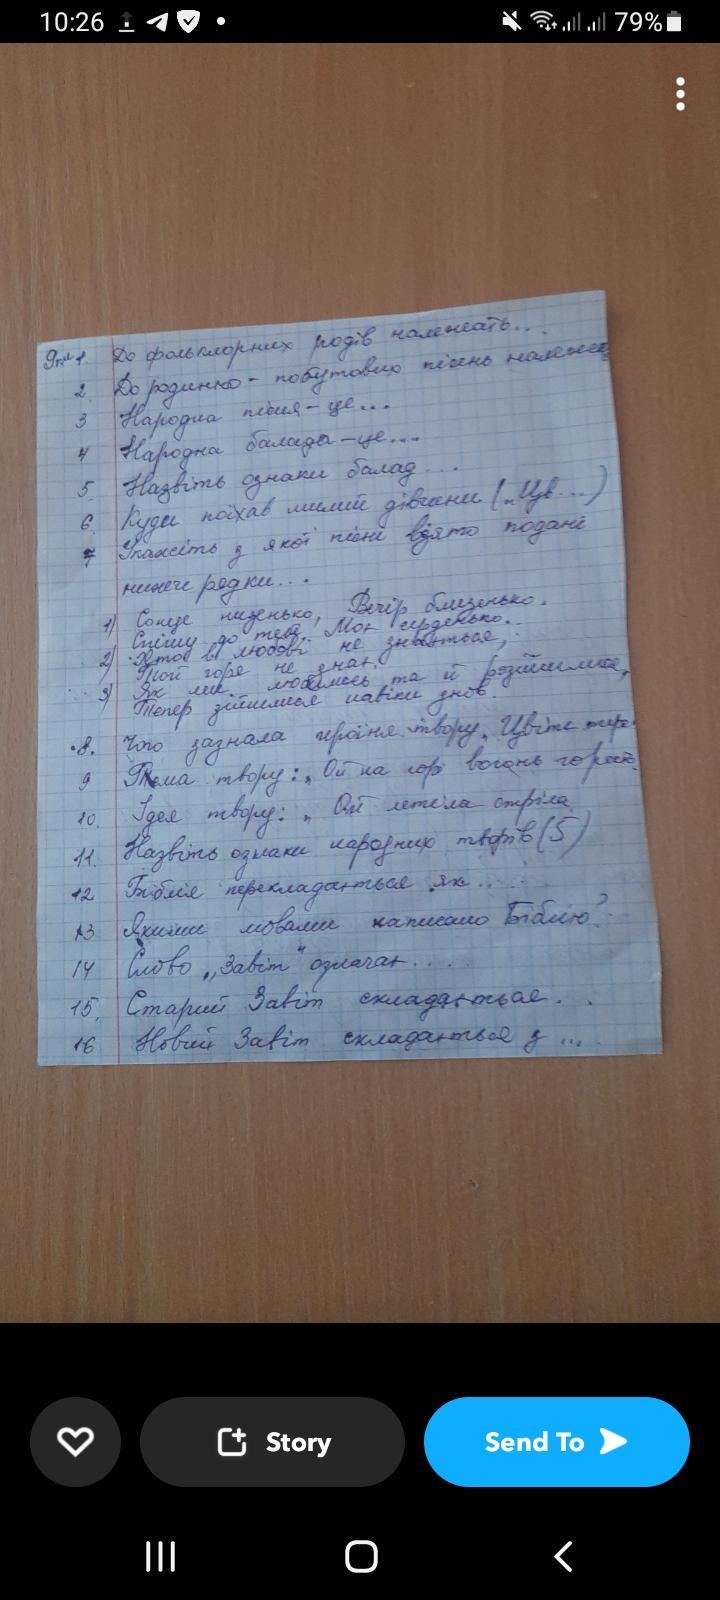 10:26 79%
1. До фольклорних родів належать...
2. До родинно-побутових пісень належ
3 Народна пісня-це...
4 Народна балада-це...
5. Назвіть ознаки балад...
6 Куди поїхав милий дівчини („Цв...)
7 Укажіть з якої пісні взято подані
нижче рядки...
1) Сонце низенько, Вечір близенько.
Спішу до тебе, Моє серденько..
2) Хто в любові не знається,
Той горя не знає.
3) Як ми любились та й розійшлися,
Тепер зійшлися навіки знов.
8. Чого зазнала героїня твору „Цвіте тере
9 Тема твору: „Ой на горі вогонь горить
10. Ідея твору: „Ой летіла стріла
11. Назвіть ознаки народних творів (5)
12 Біблія перекладається як...
13 Якими мовами написано Біблію?
14 Слово „Завіт" означає....
15. Старий Завіт складається...
16 Новий Завіт складається з ...
Story
Send To